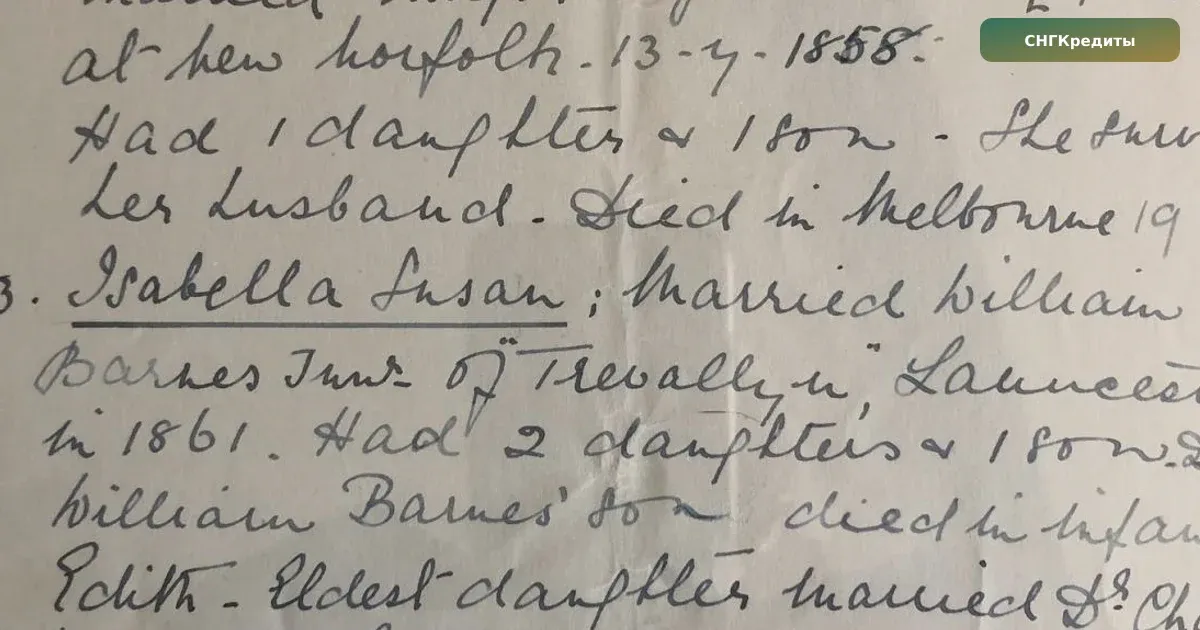 married
at New Norfolk. 13-4-1858.
СНГКредиты
Had 1 daughter & 1 son - She surv
her husband. Died in Melbourne 19
3. Isabella Susan; Married William
Barnes Junr of "Trevallyn", Launcest
in 1861. Had 2 daughters & 1 son.
William Barnes' son died in infan
Edith - Eldest daughter married Dr. Ch